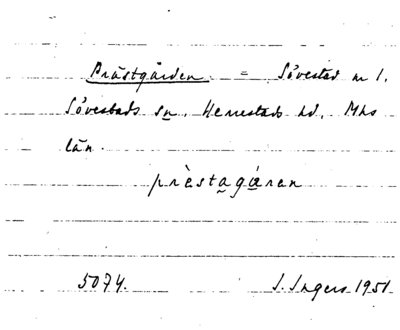 Prästgården = Sövestad nr 1.
Sövestads sn. Herrestads hd. Mhs
län.
prèstagáren
5074. I. Ingers 1951